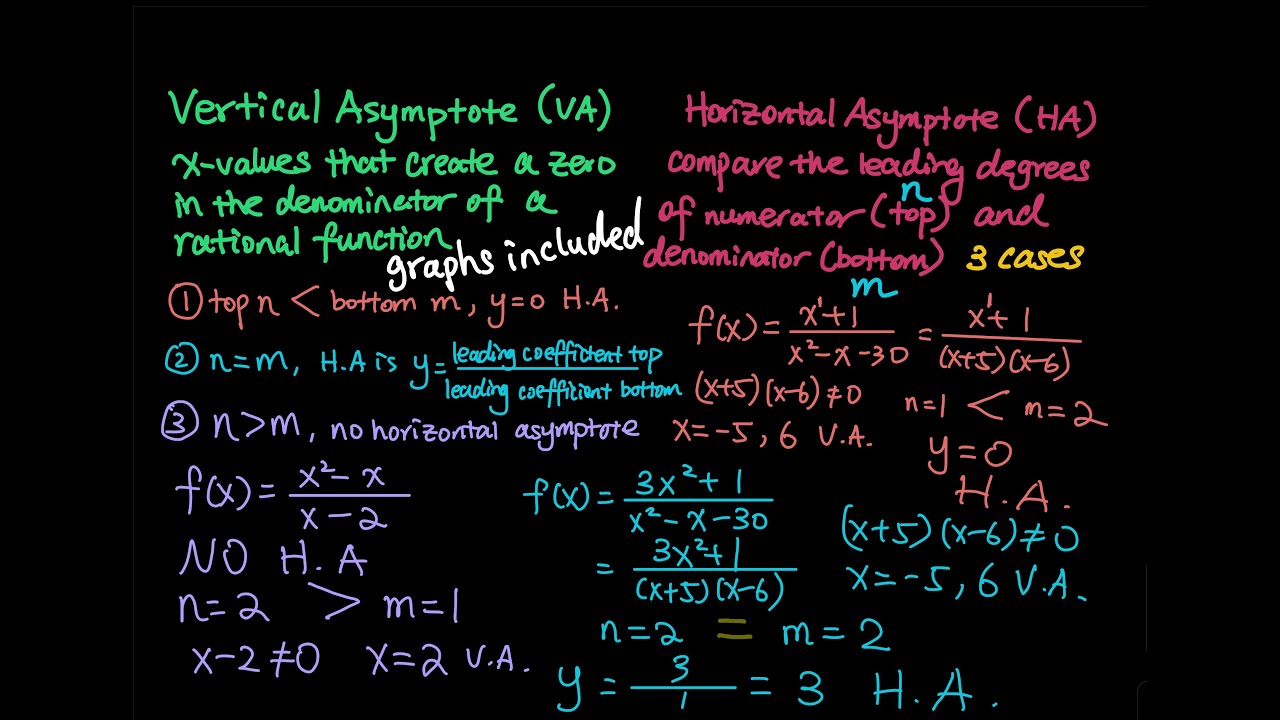 Vertical Asymptote (VA)
x-values that create a zero
in the denominator of a
rational function
graphs included
Horizontal Asymptote (HA)
compare the leading degrees
n
of numerator (top) and
denominator (bottom) 3 cases
m
① top n < bottom m, y=0 H.A.
② n=m, H.A is y= leading coefficient top / leading coefficient bottom
③ n>m, no horizontal asymptote
f(x) = (x¹+1)/(x²-x-30) = (x¹+1)/((x+5)(x-6))
(x+5)(x-6)≠0
x=-5, 6 V.A.
n=1 < m=2
y=0
H.A.
f(x) = (x²-x)/(x-2)
NO H.A
n=2 > m=1
x-2≠0 x=2 V.A.
f(x) = (3x²+1)/(x²-x-30)
= (3x²+1)/((x+5)(x-6))
(x+5)(x-6)≠0
x=-5, 6 V.A.
n=2 = m=2
y = 3/1 = 3 H.A.